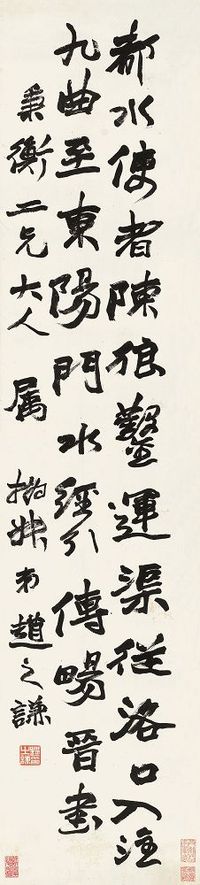 都水使者陳狼鑿運渠從洛口入注
九曲至東陽門水經引傳暢晉書
秉衡二兄大人属 撝叔弟趙之謙